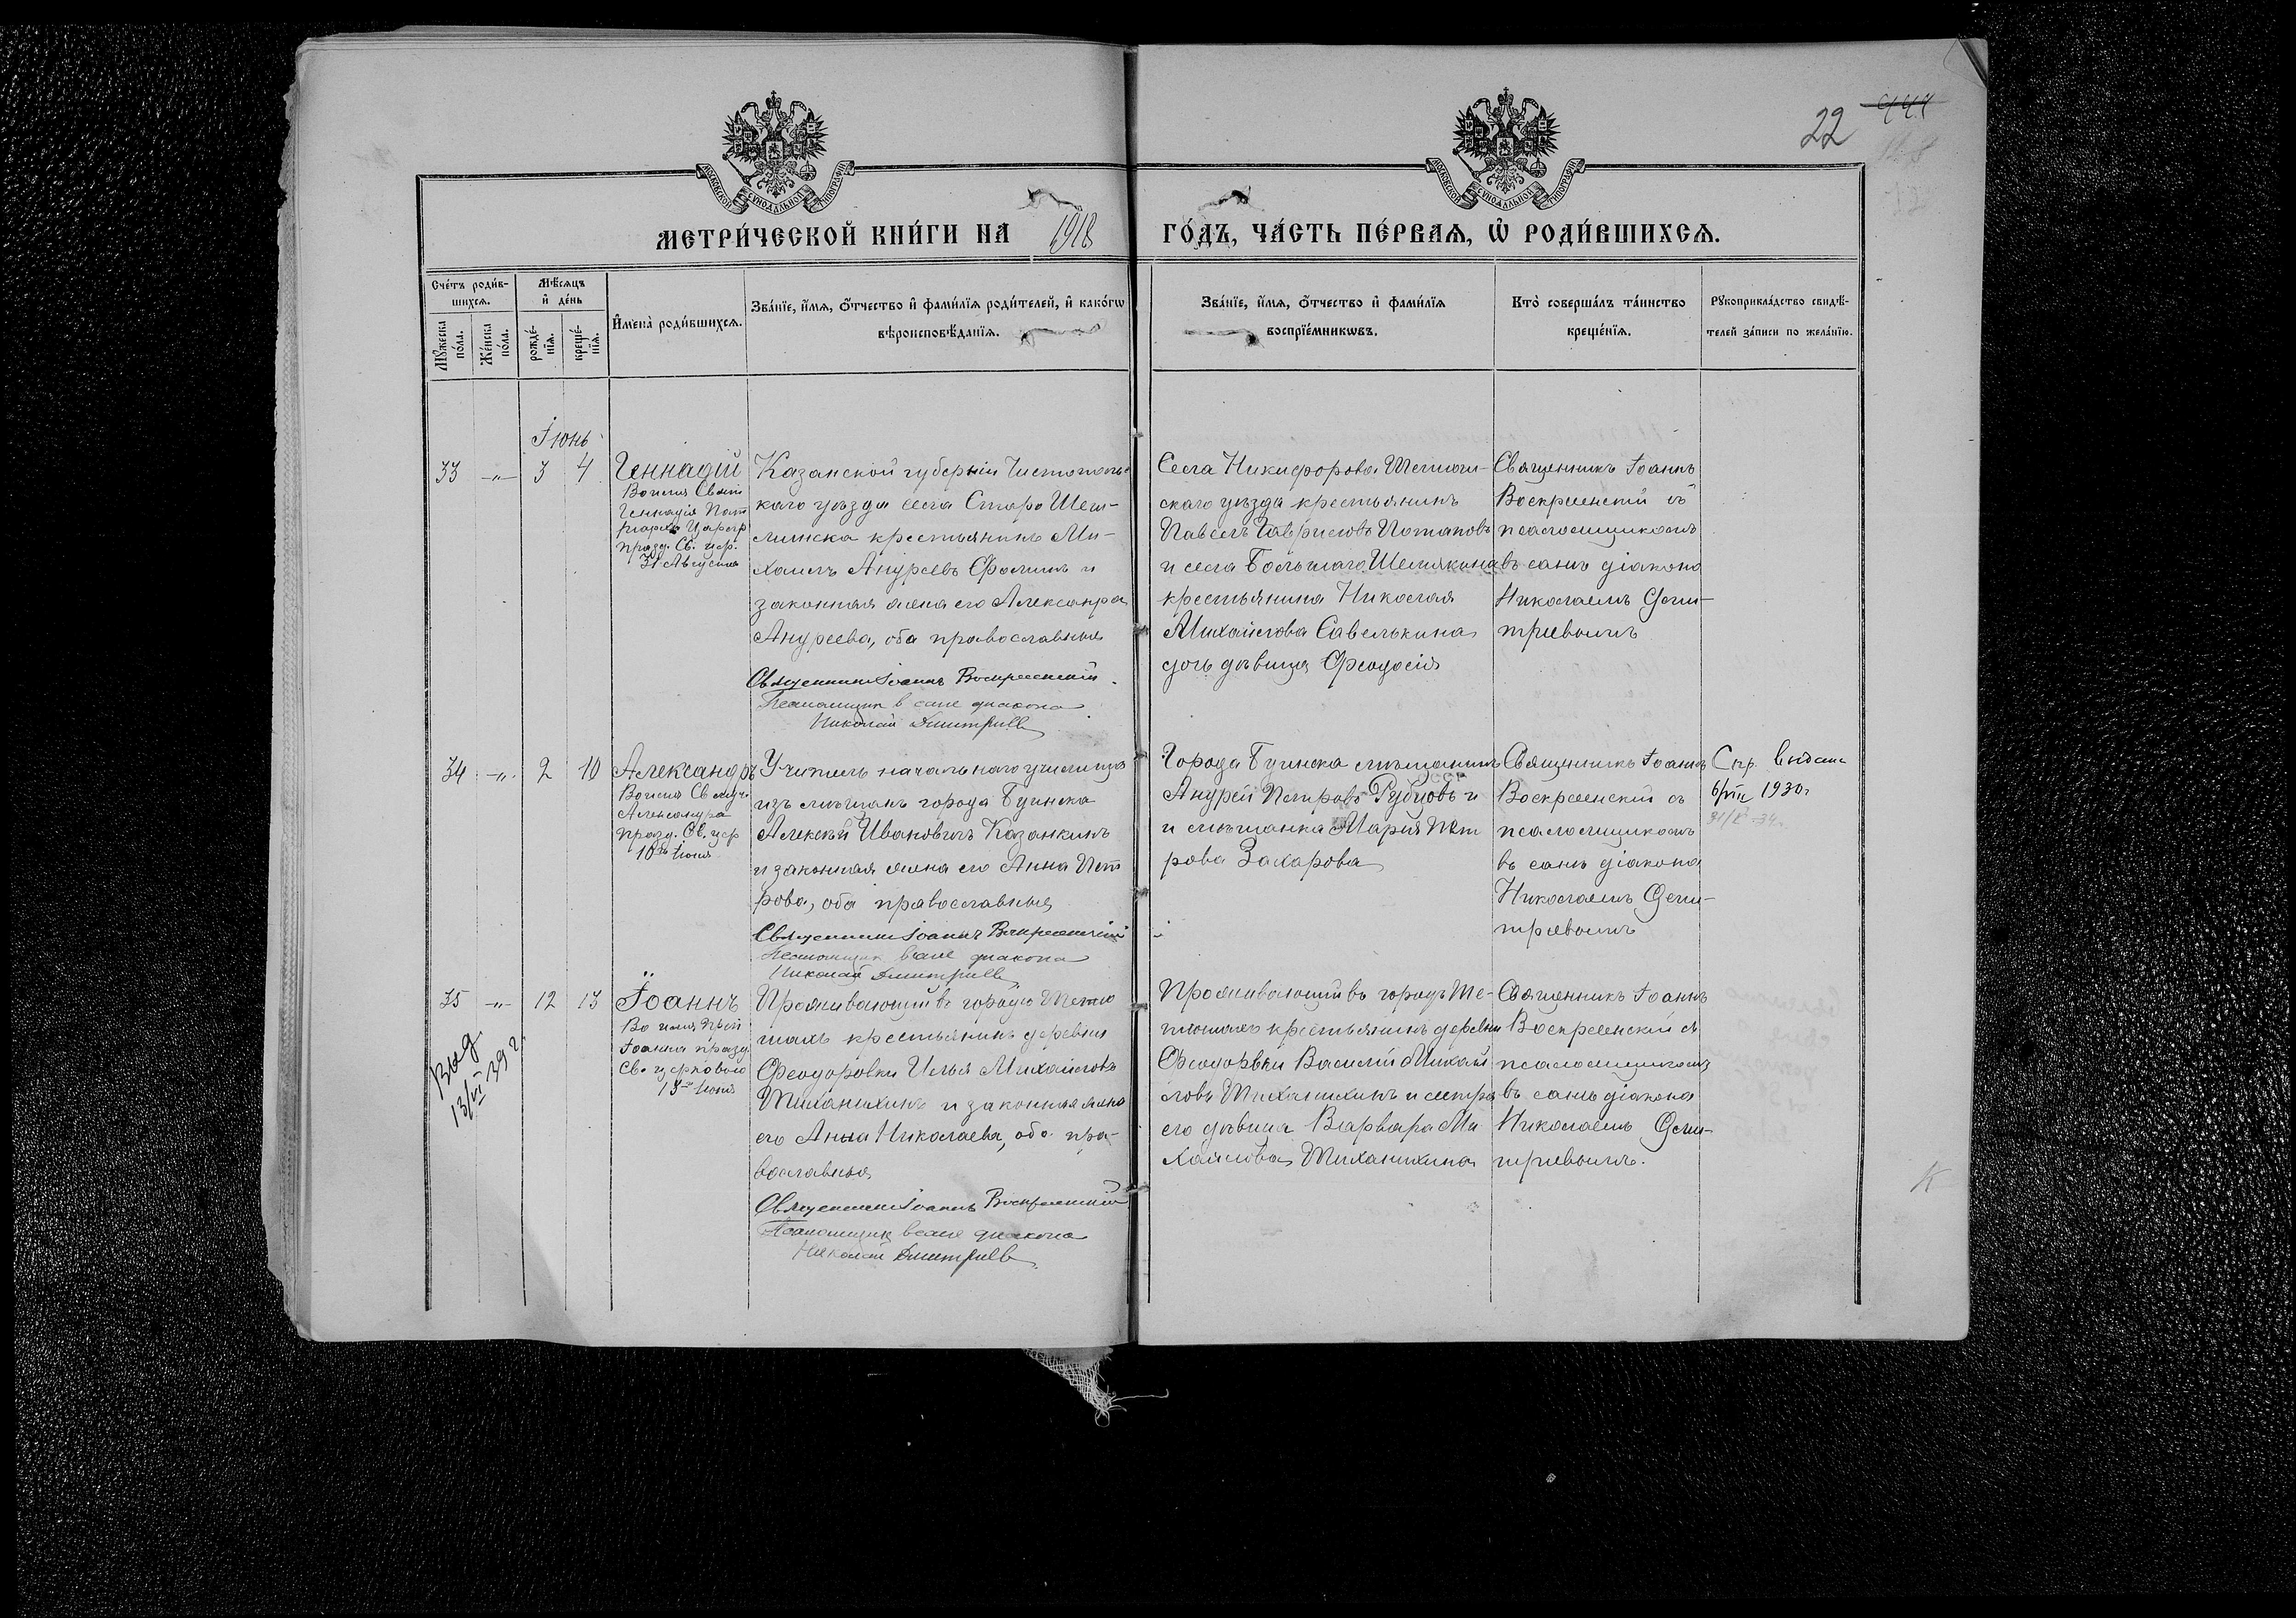 22
МОСКОВСКОЙ СѴНОДАЛЬНОЙ ТИПОГРАФІИ
МОСКОВСКОЙ СѴНОДАЛЬНОЙ ТИПОГРАФІИ
МЕТРИ́ЧЕСКОЙ КНИ́ГИ НА 1918 ГО́ДЪ, ЧА́СТЬ ПЕ́РВАЯ, Ѡ РОДИ́ВШИХСЯ.
Сче́тъ роди́в-
шихся.
Мꙋ́жеска по́ла.
Же́нска по́ла.
Мѣ́сяцъ
и де́нь
рожде́-
нїя.
креще́-
нїя.
Имена̀ роди́вшихся.
Зва́нїе, и́мя, ѻ́тчество и фами́лїя роди́телей, и како́гѡ
вѣроисповѣ́данїя.
Зва́нїе, и́мя, ѻ́тчество и фами́лїя
воспрїе́мникѡвъ.
Кто̀ соверша́лъ та́инство
креще́нїя.
Рꙋкоприкла́дство свидѣ́-
телей за́писи по жела́нїю.
Іюнь
33 -„- 3 4
Геннадій
Во имя Свят
Геннадія Пат
ріарха Царегр
празд. Св. цер.
31 Августа
Казанской губерніи Чистополь-
каго уѣзда села Старо Шеш-
минска крестьянинъ Ми-
хаилъ Андреевъ Фоминъ и
законная жена его Александра
Андреева, оба православные
Священникъ Іоаннъ Воскресенскій.
Псаломщик в сане диакона
Николай Дмитриев
Села Никифорова
скаго уѣзда крестьянинъ
Павелъ Гавриловъ Потаповъ
и села Большаго Шемякина
крестьянина Николая
Михайлова Савелькина
дочь дѣвица Феодосія
Священникъ Іоаннъ
Воскресенскій съ
псаломщикомъ
въ санѣ діакона
Николаемъ Дми-
тріевымъ
34 -„- 2 10
Александръ
Во имя Св муч.
Александра
празд. Св. цер
10го Іюня
Учитель начальнаго училища
изъ мѣщанъ города Буинска
Алексѣй Ивановичъ Казанкинъ
и законная жена его Анна Пет
рова, оба православные
Священникъ Іоаннъ Воскресенскій
Псаломщик в сане диакона
Николай Дмитриев
Города Буинска мѣщанинъ
Андрей Петровъ Рубцовъ и
и мѣщанка Марія Пет
рова Захарова
Священникъ Іоаннъ
Воскресенскій съ
псаломщикомъ
въ санѣ діакона
Николаемъ Дми-
тріевымъ
Спр. выдана
6/VIII 1930г
35 -„- 12 13
Іоаннъ
Во имя Преп
Іоанна празд
Св. церковію
Іюня
выд
13/VI 39 г.
Проживающій въ городѣ Тетю
шахъ крестьянинъ деревни
Феодоровки Илья Михайловъ
Тиханихинъ и законная жена
его Анна Николаева, оба пра-
вославные
Священникъ Іоаннъ Воскресенскій
Псаломщик в сане диакона
Николай Дмитриев
Проживающій въ городѣ Те-
тюшахъ крестьянинъ деревни
Феодоровки Василій Михай
ловъ Тиханихинъ и сестра
его дѣвица Варвара Ми
хайлова Тиханихина
Священникъ Іоаннъ
Воскресенскій съ
псаломщикомъ
въ санѣ діакона
Николаемъ Дми-
тріевымъ.